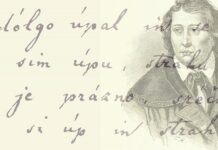 dólgo úpal in se
sim úpu, strahu
je prázno, sreč
si úp in strah